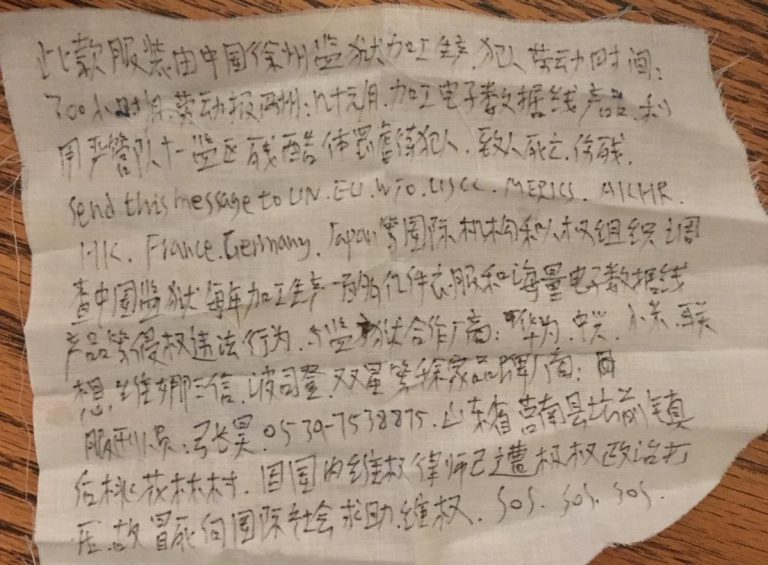 此款服装由中国徐州监狱加工生产,犯人劳动时间:
300小时/月.劳动报酬:几十元/月.加工电子数据线产品.利
用严管队十一监区残酷体罚虐待犯人.致人死亡.伤残.
send this message to UN.EU.WTO.USCC.MERICS.AICHR.
HK.France.Germany.Japan等国际机构和人权组织调
查中国监狱每年加工生产亿件衣服和海量电子数据线
产品等侵权违法行为.与监狱合作厂商:华为.小米.联
想.维娜.波司登.双星等家品牌厂商:
服刑人员.张昊.0539-7538875.山东省莒南县坊前镇
后桃花林村.因国内维权律师已遭极权政治打
压.故冒死向国际社会求助.维权.SOS.SOS.SOS.